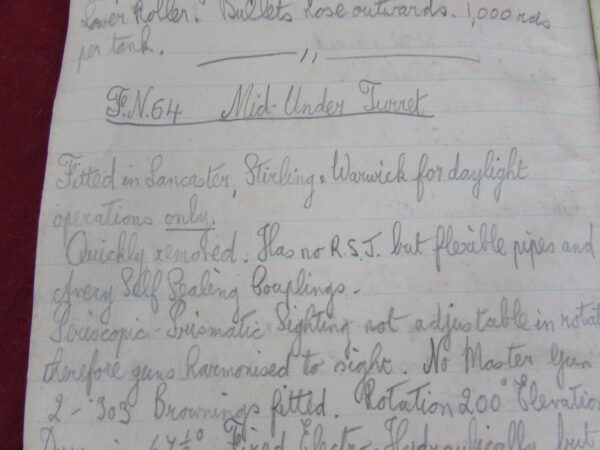 Lower Roller. Bullets nose outwards. 1,000 rds
per tank.
F.N.64 Mid-Under Turret
Fitted in Lancaster, Stirling & Warwick for daylight
operations only.
Quickly removed. Has no R.S.J. but flexible pipes and
Avery Self Sealing Couplings.
Periscopic-Prismatic Sighting not adjustable in rotat
therefore guns harmonised to sight. No Master Gun
2-303 Brownings fitted. Rotation 200° Elevation
Fired Electro-Hydraulically but